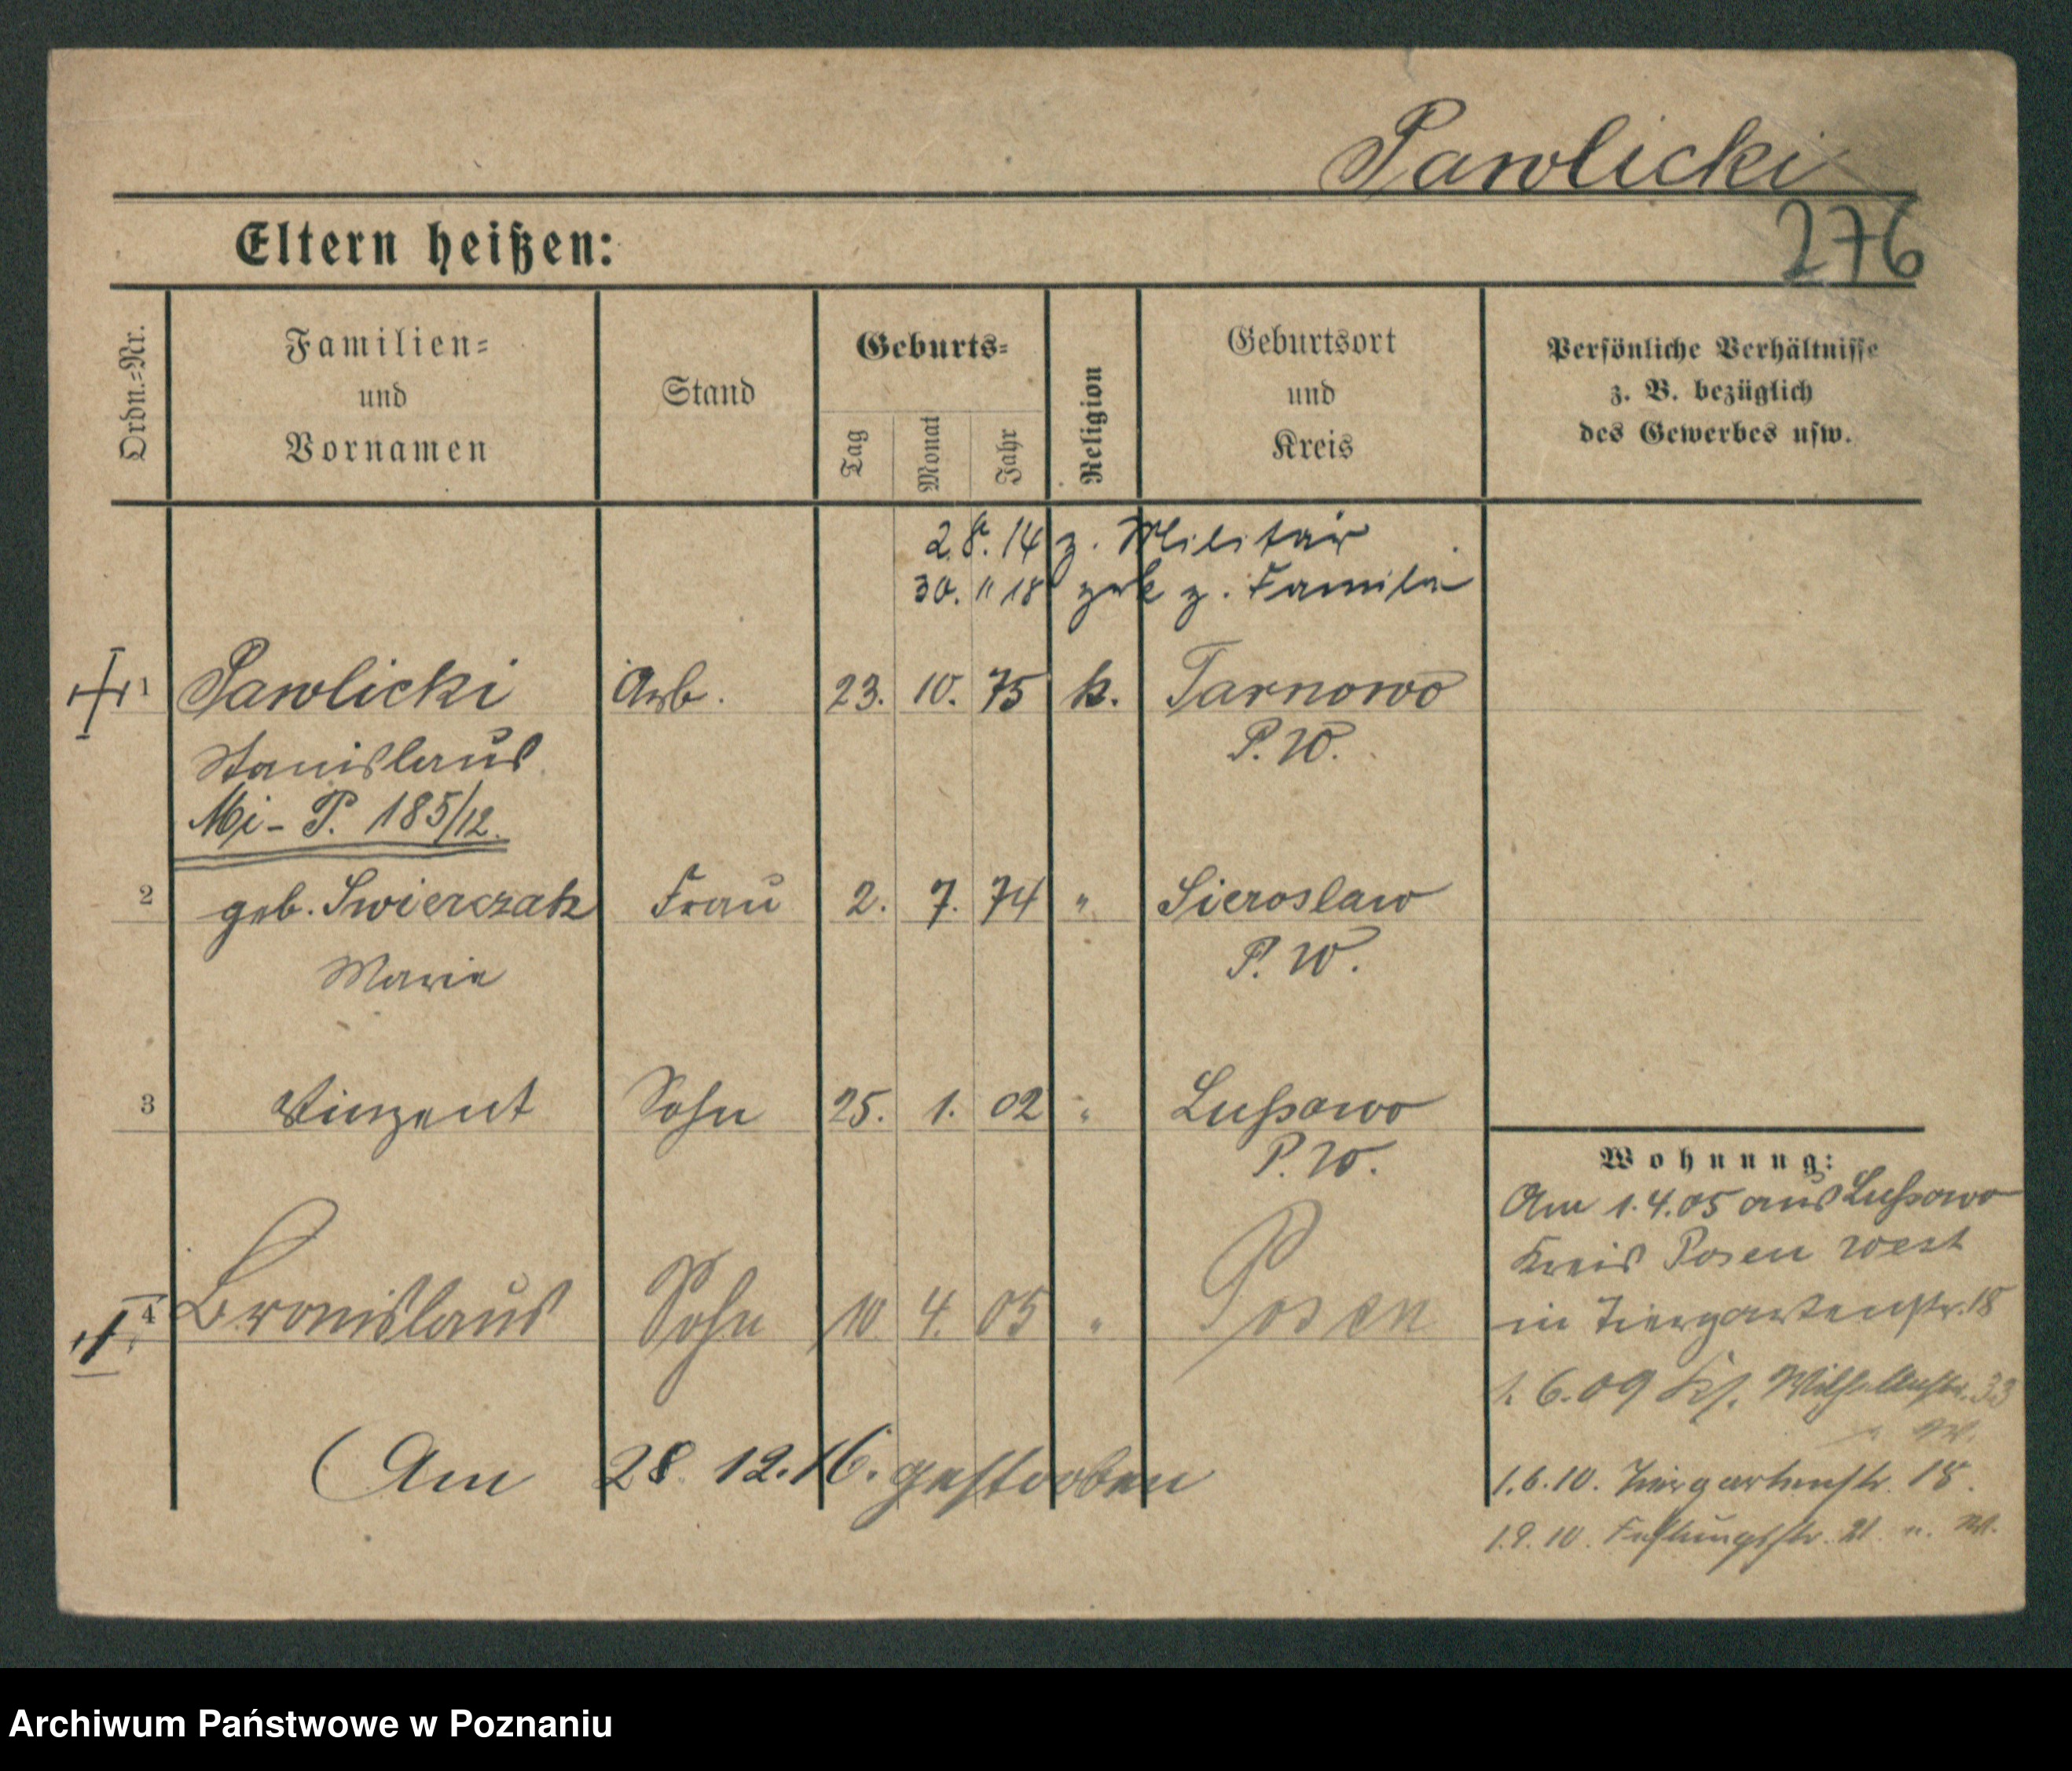 Pawlicki
276
Eltern heißen:
Ordn.=Nr.
Familien=
und
Vornamen
Stand
Geburts=
Tag
Monat
Jahr
Religion
Geburtsort
und
Kreis
Persönliche Verhältnisse
z. B. bezüglich
des Gewerbes usw.
2. 8. 14 z. Militär
30. 11 18 zrk z. Familie
1 Pawlicki Arb. 23. 10. 75 k. Tarnowo
Stanislaus P. W.
Mi - P. 185/12.
2 geb. Swierczak Frau 2. 7. 74 " Sieroslaw
Marie P. W.
3 Vinzent Sohn 25. 1. 02 " Lußowo
P. W.
4 Bronislaus Sohn 10 4. 05 " Posen
Am 28. 12. 16. gestorben
Wohnung:
Am 1. 4. 05 aus Lußowo
Kreis Posen West
in Tiergartenstr. 18
1. 6. 09 Kl. Wilhelmstr. 33
1. 6. 10. Tiergartenstr. 18.
1. 9. 10. Festungsstr. 21
Archiwum Państwowe w Poznaniu